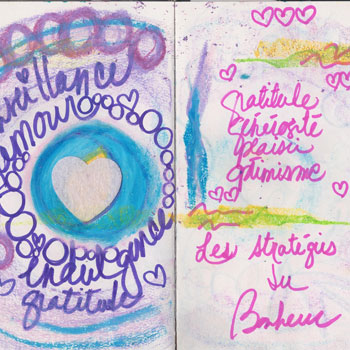 veillance
amour
indulgence
gratitude
gratitude
générosité
plaisir
optimisme
Les stratégis
du
Bonheur